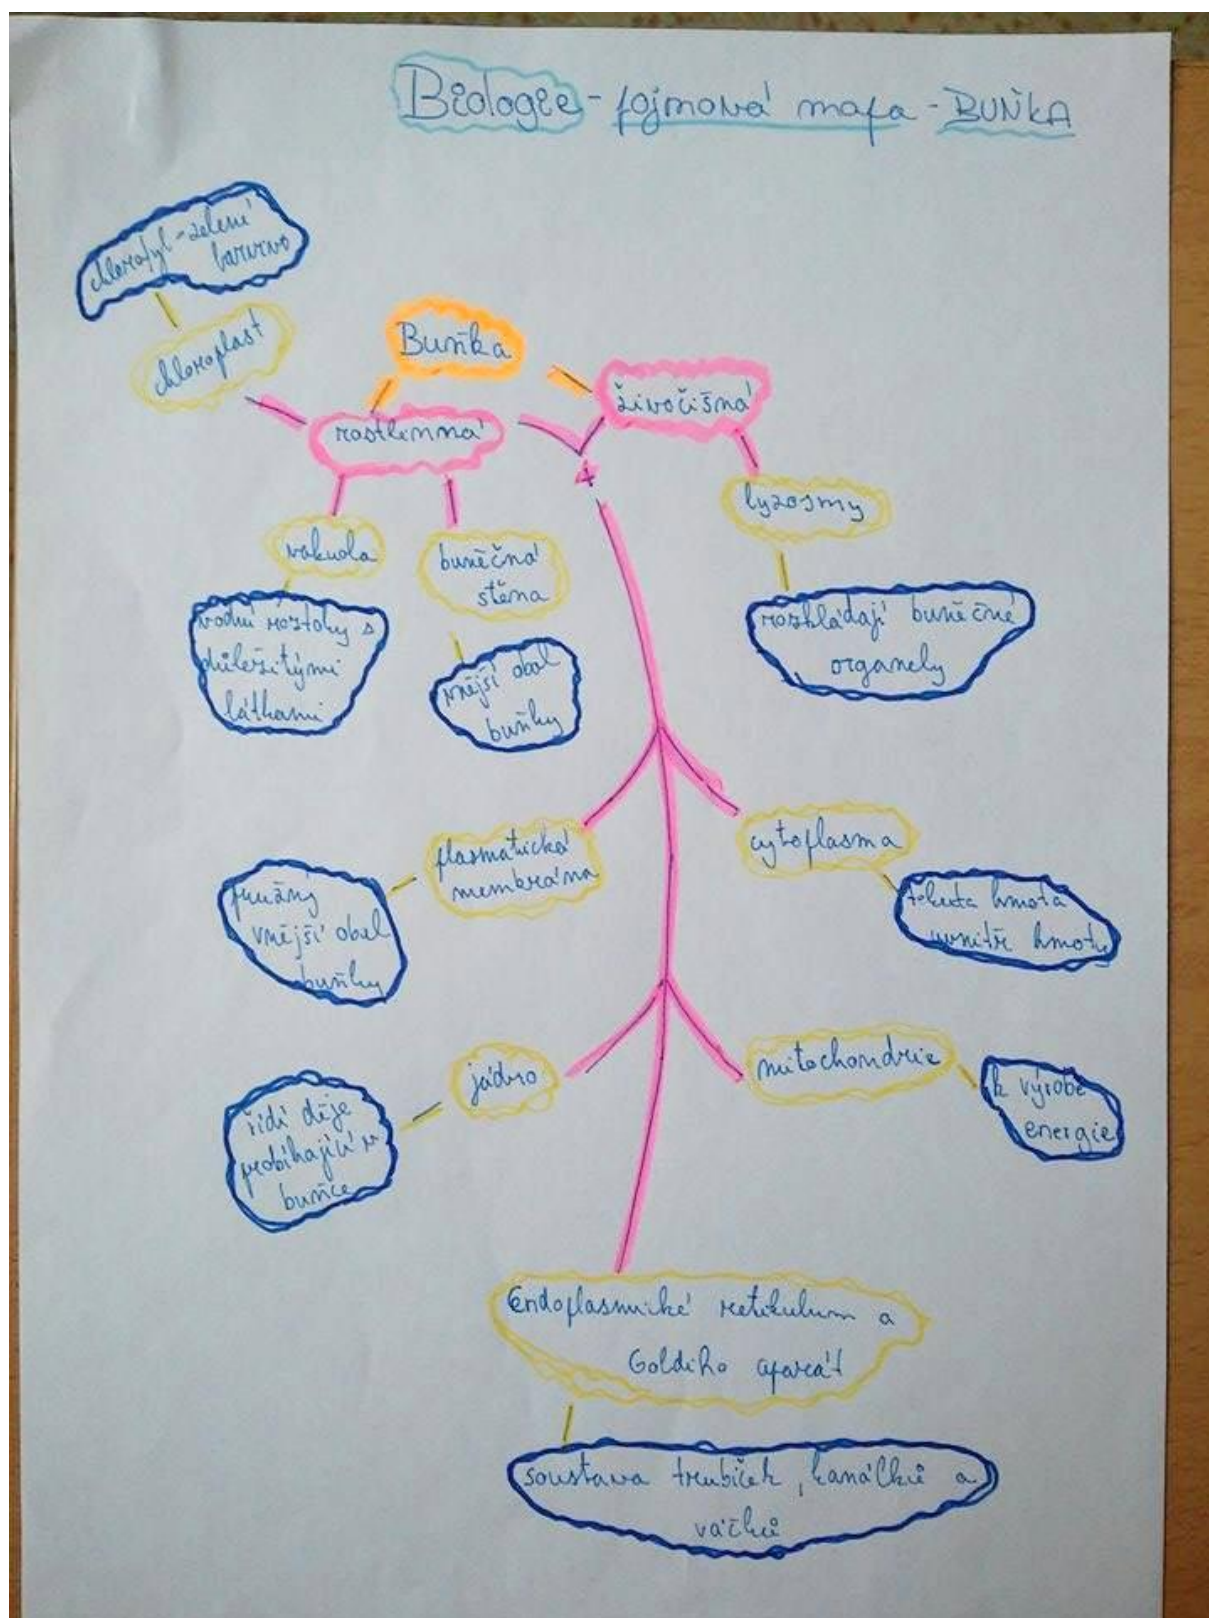 Biologie - pojmová mapa - BUŇKA
chlorofyl - zelené
barvivo
chloroplast
Buňka
živočišná
rostlinná
+
lyzosmy
vakuola
buněčná
stěna
rozkládají buněčné
organely
vodní roztoky s
důležitými
látkami
vnější obal
buňky
plasmatická
membrána
cytoplasma
pružný
vnější obal
buňky
tekutá hmota
uvnitř hmoty
jádro
mitochondrie
řídí děje
probíhající v
buňce
k výrobě
energie
Endoplasmické retikulum a
Goldiho aparát
soustava trubiček, kanálků a
váčků